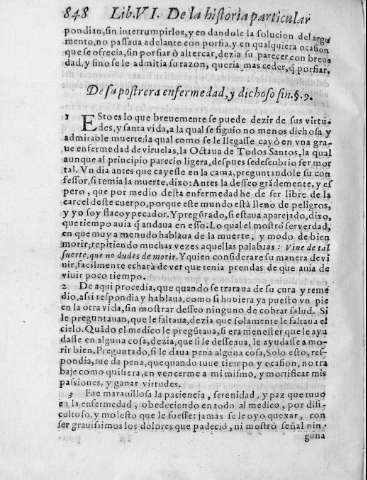 848 Lib. VI. De la historia particular
pondian, sin interrumpirlos, y en dandole la solucion del argu
mento, no passaua adelante con porfia, y en qualquiera ocasion
que se ofrecia, sin porfiar ò altercar, dezia su parecer con breue
dad, y sino se le admitia su razon, queria mas ceder, q̃ porfiar,
De su postrera enfermedad, y dichoso fin. §. 9.
1 Esto es lo que breuemente se puede dezir de sus virtu-
des, y santa vida, a la qual se siguio no menos dichosa y
admirable muerte, la qual como se le llegasse cayò en vna gra-
ue enfermedad de viruelas, la Octaua de Todos Santos, la qual
aunque al principio parecio ligera, despues se descubrio ser mor
tal. Vn dia antes que cayesse en la cama, preguntandole su con
fessor, si temia la muerte, dixo: Antes la desseo grãdemente, y es
pero, que por medio desta enfermedad he de ser libre de la
carcel deste cuerpo, porque este mundo està lleno de peligros,
y yo soy flaco y pecador. Y pregũtado, si estaua aparejado, dixo,
que tiempo auia q̃ andaua en esso. Lo qual mostrò ser verdad,
en que muy a menudo hablaua de la muerte, y modo de bien
morir, repitiendo muchas vezes aquellas palabras: Viue de tal
suerte, que no dudes de morir. Y quien considerare su manera de vi
uir, facilmente echarà de ver que tenia prendas de que auia de
viuir poco tiempo.
2 De aqui procedia, que quando se trataua de su cura y reme
dio, assi respondia y hablaua, como si huuiera ya puesto vn pie
en la otra vida, sin mostrar desseo ninguno de cobrar salud. Si
le preguntauan, que le faltaua, dezia que solamente le faltaua el
cielo. Quãdo el medico le pregũtaua, si era menester que le ayu
dasse en alguna cosa, dezia, que si le desseaua, le ayudasse a mo-
rir bien. Preguntado, si le daua pena alguna cosa, Solo esto, res-
pondia, me da pena, que quando tuue tiempo y ocasion, no tra
baje como quisiera, en vencerme a mi mismo, y mortificar mis
passiones, y ganar virtudes.
3 Fue marauillosa la paciencia, serenidad, y paz que tuuo
en la enfermedad, obedeciendo en todo al medico, por difi-
cultoso, y molesto que fuesse: jamàs se le oyò quexar, con
ser grauissimos los dolores que padeciò, ni mostrò señal nin-
guna